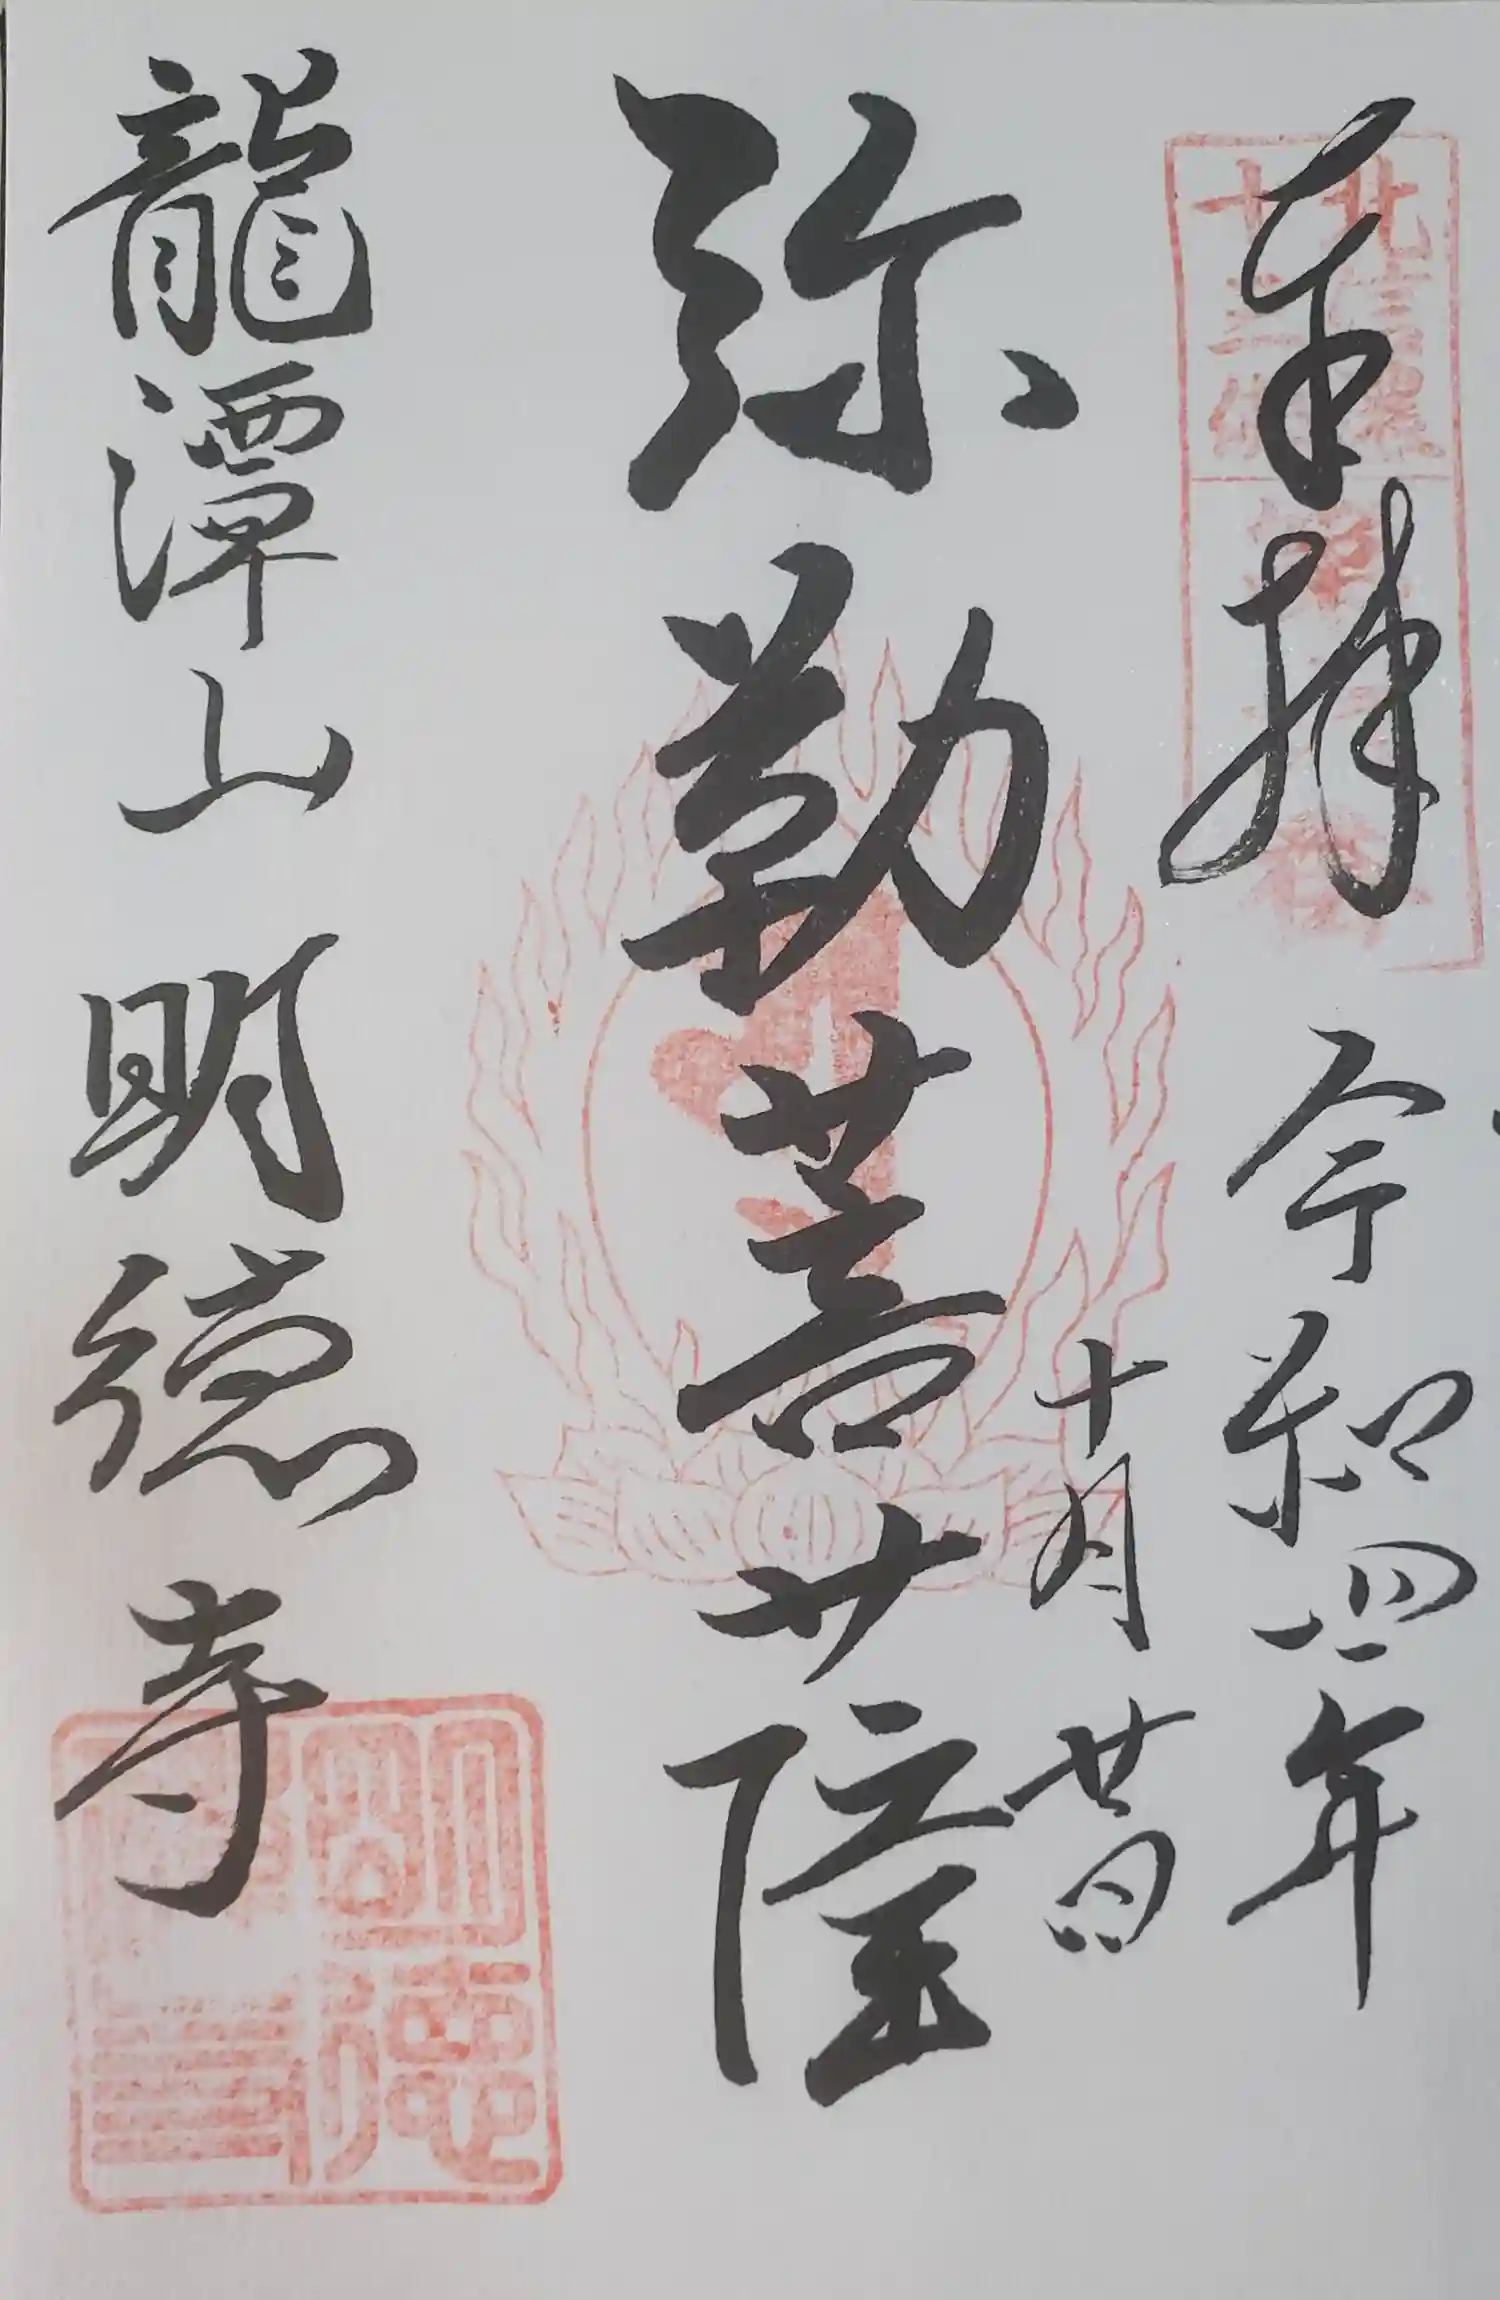 奉拝
令和四年
十月廿日
弥勒菩薩
龍潭山
明徳寺